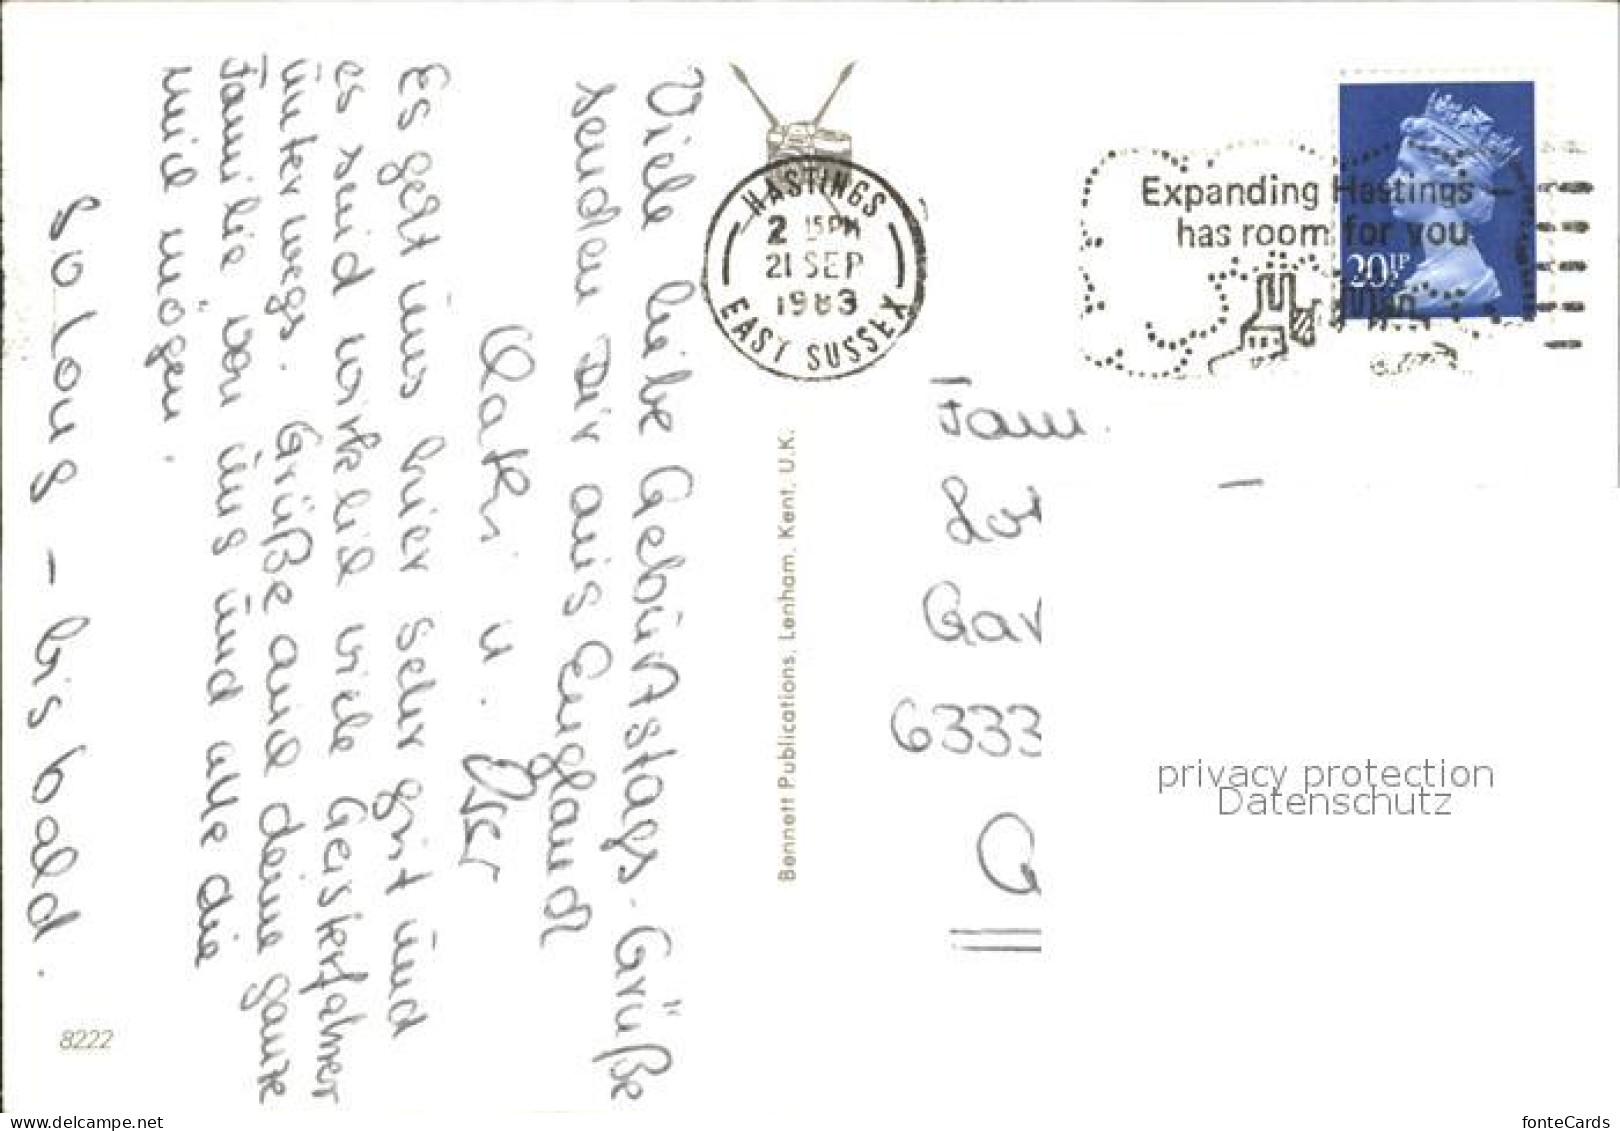 Viele liebe Gebürtstags-Grüße
senden Dir aus England
Kathi u.
Es geht uns hier sehr gut und
es sind wirklich viele Geisterfahrer
unterwegs. Grüße auch deine ganze
Familie von uns und alle die
mich mögen.
So long - bis bald.
8222
Bennett Publications, Lenham, Kent, U.K.
HASTINGS
2 15PM
21 SEP
1983
EAST SUSSEX
Expanding Hastings
has room for you
20½P
Fam.
6333
privacy protection
Datenschutz
www.delcampe.net
fonteCards